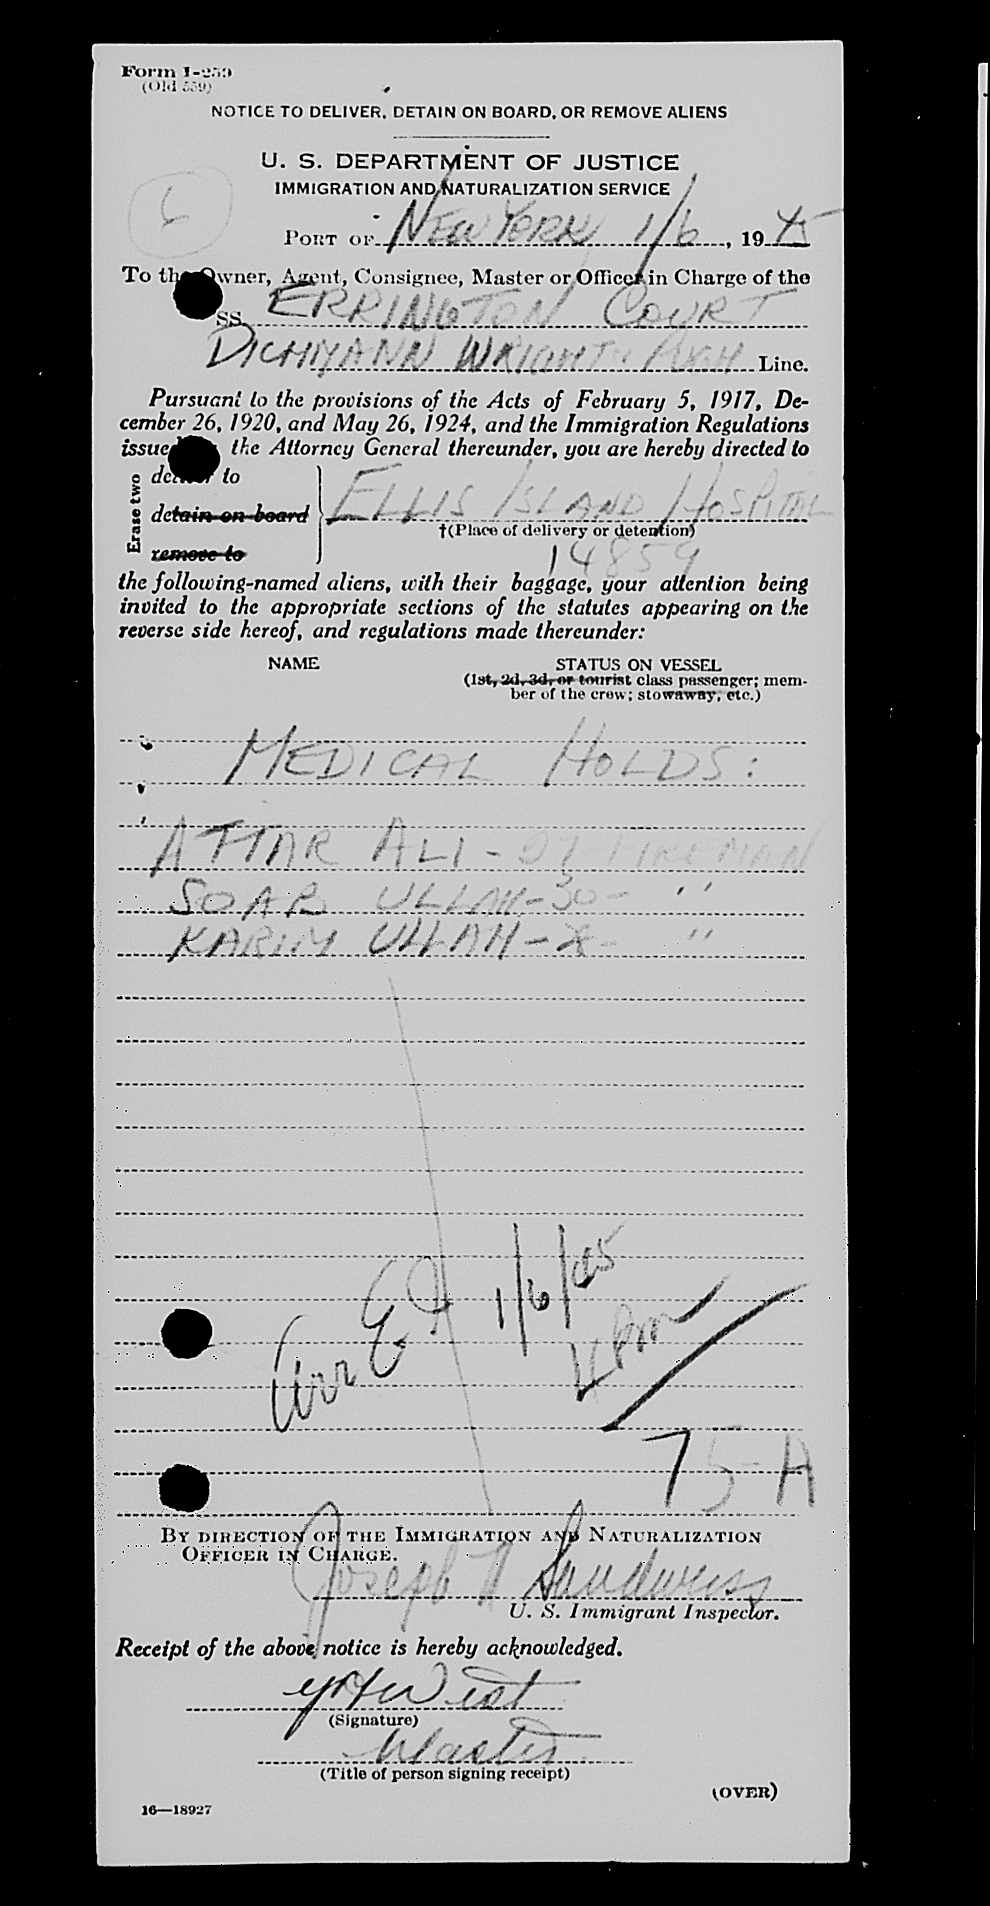 Form I-259
(Old 559)
NOTICE TO DELIVER, DETAIN ON BOARD, OR REMOVE ALIENS
U. S. DEPARTMENT OF JUSTICE
IMMIGRATION AND NATURALIZATION SERVICE
6
PORT OF NEW YORK 1/6, 1945
To the Owner, Agent, Consignee, Master or Officer in Charge of the
SS. ERRINGTON COURT
DICHMANN WRIGHT & PUGH Line.
Pursuant to the provisions of the Acts of February 5, 1917, De-
cember 26, 1920, and May 26, 1924, and the Immigration Regulations
issued the Attorney General thereunder, you are hereby directed to
Erase two
deliver to
detain on board
remove to
ELLIS ISLAND HOSPITAL
†(Place of delivery or detention)
14859
the following-named aliens, with their baggage, your attention being
invited to the appropriate sections of the statutes appearing on the
reverse side hereof, and regulations made thereunder:
NAME STATUS ON VESSEL
(1st, 2d, 3d, or tourist class passenger; mem-
ber of the crew; stowaway, etc.)
MEDICAL HOLDS:
ATTAR ALI - FIREMAN
SOAB ULLAH - 30 - "
KARIM ULLAH - - "
Arr EI 1/6/45
4 Pm
75-A
BY DIRECTION OF THE IMMIGRATION AND NATURALIZATION
OFFICER IN CHARGE.
Joseph Sandweiss
U. S. Immigrant Inspector.
Receipt of the above notice is hereby acknowledged.
West
(Signature)
Master
(Title of person signing receipt)
(OVER)
16—18927